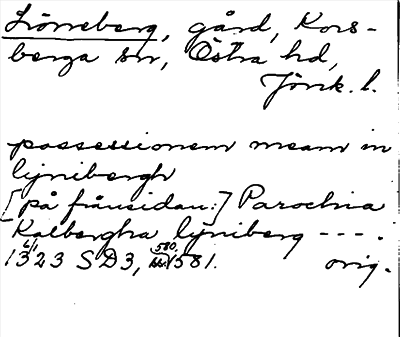 Lönneberg, gård, Kors-
berga sn, Östra hd,
Jönk. l.
possessionem meam in
lynibergh
[på frånsidan:] Parochia
Kalbergha lyniberg ---.
6/1 580.
1323 SD3, s. 1581. orig.